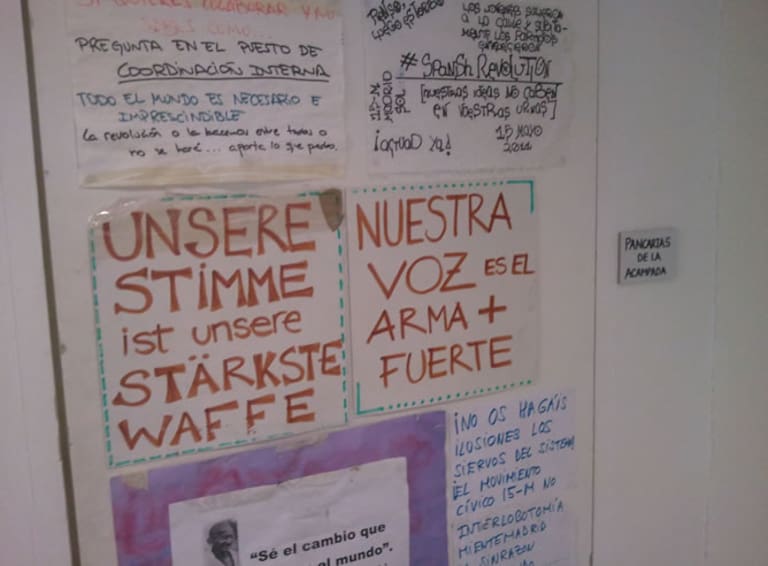 SI QUIERES COLABORAR Y NO
SABES COMO...
PREGUNTA EN EL PUESTO DE
COORDINACIÓN INTERNA
TODO EL MUNDO ES NECESARIO E
IMPRESCINDIBLE
la revolución o la hacemos entre todos o
no se hará... aporta lo que puedas.
A LA CALLE Y
MENTE LOS
# SPANISH REVOLUTION
15-M
MADRID
SOL
[NUESTRAS IDEAS NO CABEN
EN VUESTRAS URNAS]
¡ACTUAD YA!
15 MAYO
2011
UNSERE
STIMME
ist unsere
STÄRKSTE
WAFFE
NUESTRA
VOZ ES EL
ARMA +
FUERTE
PANCARTAS
DE LA
ACAMPADA
¡NO OS HAGÁIS
ILUSIONES LOS
SIERVOS DEL SISTEMA!
¡EL MOVIMIENTO
CÍVICO 15-M NO
INTERLOBOTOMÍA
MIENTEMADRID
SINRAZON
"Sé el cambio que
el mundo".